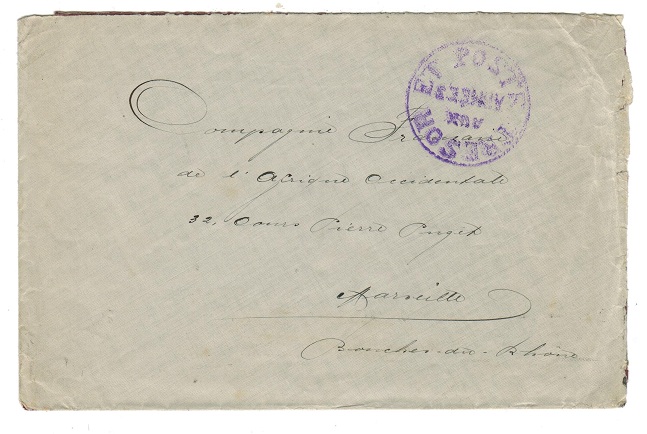 TRESOR ET POSTE
AUX
ARMEES
Compagnie Française
de l'Afrique Occidentale
32, Cours Pierre Puget
Marseille
Bouches-du-Rhône